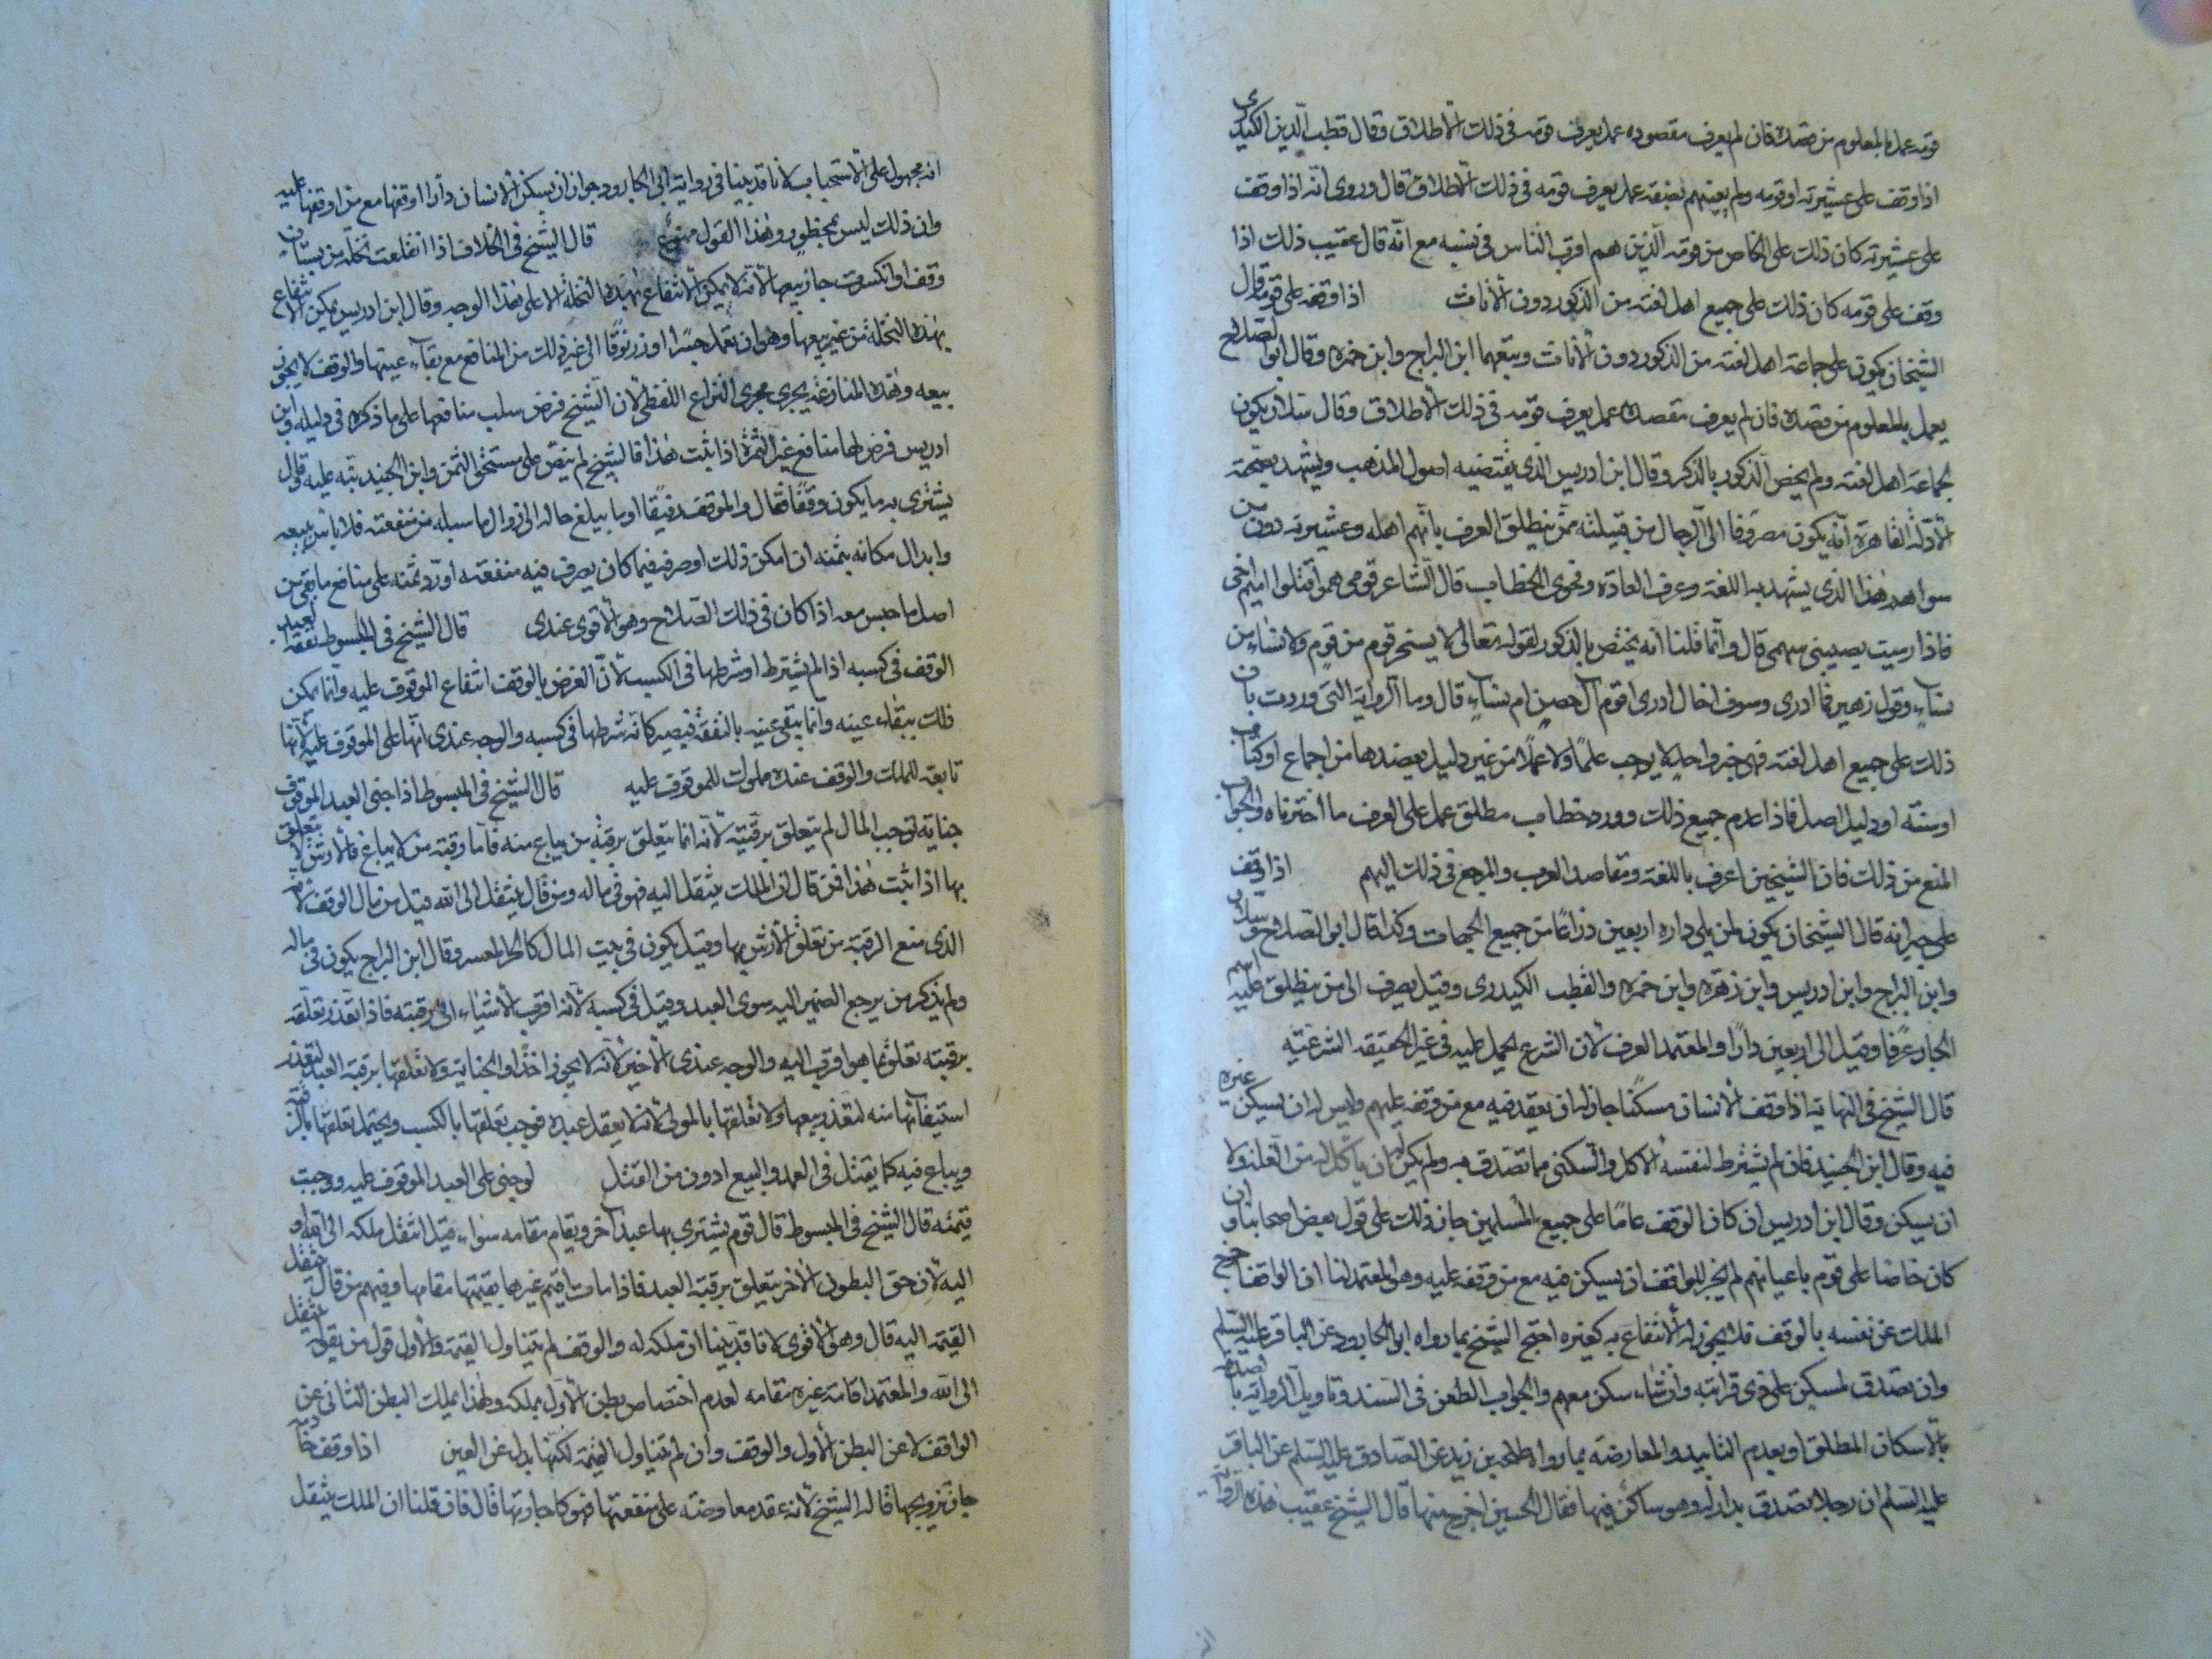 قومه عمل بالمعلوم من قصده فان لم يعرف مقصوده عمل بعرف قومه في ذلك الاطلاق وقال قطب الدين الكيدري
اذا وقف على عشيرته او قومه ولم يعينهم بصفة عمل بعرف قومه في ذلك الاطلاق قال وروى انه اذا وقف
على عشيرته كان ذلك على الخاص من قومه الذين هم اقرب الناس في نسبه مع انه قال عقيب ذلك اذا
وقف على قومه كان ذلك على جميع اهل لغته من الذكور دون الاناث اذا وقف على قومه قال
الشيخان يكون على جماعة اهل لغته من الذكور دون الاناث وتبعهما ابن البراج وابن حمزه وقال ابو الصلاح
يعمل بالمعلوم من قصده فان لم يعرف مقصده عمل بعرف قومه في ذلك الاطلاق وقال سلار يكون
لجماعة اهل لغته ولم يخص الذكور بالذكر وقال ابن ادريس الذي يقتضيه اصول المذهب ويشهد بصحته
الادلة القاهرة انه يكون مصروفا الى الرجال من قبيلته ممن ينطلق العرف بانهم اهله وعشيرته دون من
سواهم هذا الذي يشهد به اللغة وعرف العادة وفحوى الخطاب قال الشاعر قومي همو قتلوا اميم اخي
فاذا رميت يصيبني سهمي قال وانما قلنا انه يختص بالذكور لقوله تعالى لا يسخر قوم من قوم ولا نساء من
نساء وقول زهير فما ادرى وسوف اخال ادرى اقوم آل حصن ام نساء قال وما الرواية التي وردت بان
ذلك على جميع اهل لغته فهي خبر واحد لا يوجب علما ولا عملا من غير دليل يعضدها من اجماع او كتاب
او سنة او دليل اصل فاذا عدم جميع ذلك وورد خطاب مطلق عمل على العرف ما اخترناه والجواب
المنع من ذلك فان الشيخين اعرف باللغة ومقاصد العرب والمرجع في ذلك اليهم اذا وقف
على جيرانه قال الشيخان يكون لمن يلي داره اربعين ذراعا من جميع الجهات وكذا قال ابو الصلاح وسلار
وابن البراج وابن ادريس وابن زهره وابن حمزه والقطب الكيدرى وقيل يصرف الى من يطلق عليه اسم
الجار عرفا وقيل الى اربعين دارا والمعتمد العرف لان الشرع يحمل عليه في غير الحقيقه الشرعيه
قال الشيخ في النهاية اذا وقف الانسان مسكنا جاز له ان يقعد فيه مع من وقفه عليهم وليس له ان يسكن غيره
فيه وقال ابن الجنيد فان لم يشترط لنفسه الاكل والسكنى مما تصدق به ولم يكن له ان ياكل له من الغلة ولا
ان يسكن وقال ابن ادريس ان كان الوقف عاما على جميع المسلمين جاز ذلك على قول بعض اصحابنا وان
كان خاصا على قوم باعيانهم لم يجز للواقف ان يسكن فيه مع من وقفه عليه وهو المعتمد لنا ان الواقف اخرج
الملك عن نفسه بالوقف فلا يجوز له الانتفاع به كغيره احتج الشيخ بما رواه ابو الجارود عن الباقر عليه السلم
وان تصدق لمسكن على ذى قرابته وان شاء سكن معهم والجواب الطعن في السند وتاويل الرواية بالصدقه
بالاسكان المطلق او بعدم التابيد والمعارضه بما رواه طلحه بن زيد عن الصادق عليه السلم عن الباقر
عليه السلم ان رجلا تصدق بدار له وهو ساكن فيها فقال الحسين اخرج منها قال الشيخ عقيب هذه الرواية
انه محمول على الاستحباب لانا قد بينا في رواية ابي الجارود جواز ان يسكن الانسان دارا اوقفها مع من اوقفها عليه
وان ذلك ليس بمحظور وهذا القول ممنوع قال الشيخ في الخلاف اذا انقلعت نخلة من بستان
وقف او انكسرت جاز بيعها لانه لا يمكن الانتفاع بهذه النخلة الا على هذا الوجه وقال ابن ادريس يمكن الانتفاع
بهذه النخلة من غير بيعها وهو ان تعمل جسرا او زرنوقا الى غير ذلك من المنافع مع بقاء عينها والوقف لا يجوز
بيعه وهذه المنازعة يجرى مجرى النزاع اللفظي لان الشيخ فرض سلب منافعها على ما ذكره في دليله وابن
ادريس فرض لها منافع غير الثمرة اذا ثبت هذا فالشيخ لم ينص على مستحق الثمن وابن الجنيد نبه عليه وقال
يشترى به ما يكون وقفا فقال والموقف رقيقا او ما يبلغ حاله الى زوال ما سبله من منفعته فلا باس ببيعه
وابدال مكانه بثمنه ان امكن ذلك او صرفه فيما كان يصرف فيه منفعته او رد ثمنه على منافع ما بقي من
اصل ما حبس معه اذا كان في ذلك الصلاح وهو الاقوى عندى قال الشيخ في المبسوط نفقة العبد
الوقف في كسبه اذا لم يشترط او شرطها في الكسب لان الغرض بالوقف انتفاع الموقوف عليه وانما يمكن
ذلك ببقاء عينه وانما يبقى عينه بالنفقة فيصير كانه شرطها في كسبه والوجه عندى انها على الموقوف عليه لانها
تابعة للملك والوقف عنده مملوك للموقوف عليه قال الشيخ في المبسوط اذا جنى العبد الموقوف
جناية توجب المال لم يتعلق برقبته لانه انما يتعلق برقبة من يباع منه فاما رقبة من لا يباع فالارش لا يتعلق
بها اذا ثبت هذا فمن قال ان الملك ينتقل اليه فهو في ماله ومن قال ينتقل الى الله قيل من مال الوقف لانه
الذى منع الرقبة من تعلق الارش بها وقيل يكون في بيت المال كالحر المعسر وقال ابن البراج يكون في ماله
ولم يذكر من يرجع الضمير اليه سوى العبد وقيل في كسبه لانه اقرب الاشياء الى رقبته فاذا تعذر تعلقه
برقبته تعلق بما هو اقرب اليه والوجه عندى الاخير لانه لا يجوز اخذ الجناية ولا تعلقها برقبة العبد لتعذر
استيفائها منه لتعذر بيعها ولا تعلقها بالمولى لانه لا يعقل عبده فوجب تعلقها بالكسب ويحتمل تعلقها بالرقبة
ويباع فيه كما يقتل في العمد والبيع ادون من القتل لو جنى على العبد الموقوف عليه ووجبت
قيمته قال الشيخ في المبسوط قال قوم يشترى بها عبد آخر ويقام مقامه سواء قيل انتقل ملكه الى الله او
اليه لان حق البطون الاخر يتعلق برقبة العبد فاذا مات اقيم غيرها بقيمتها مقامها وفيهم من قال ينتقل
القيمة اليه قال وهو الاقوى لانا قد بينا ان ملكه له والوقف لم يتناول القيمة والاول قول من يقول ينتقل
الى الله والمعتمد اقامة غيره مقامه لعدم اختصاص بطن الاول بملكه ولهذا يملك البطن الثاني عن
الواقف لا عن البطن الاول والوقف وان لم تناول القيمة لكنها بدل عن العين اذا وقف خادمة
جاز تزويجها قاله الشيخ لانه عقد معاوضه على منفعتها فهو كاجارتها قال فان قلنا ان الملك ينتقل